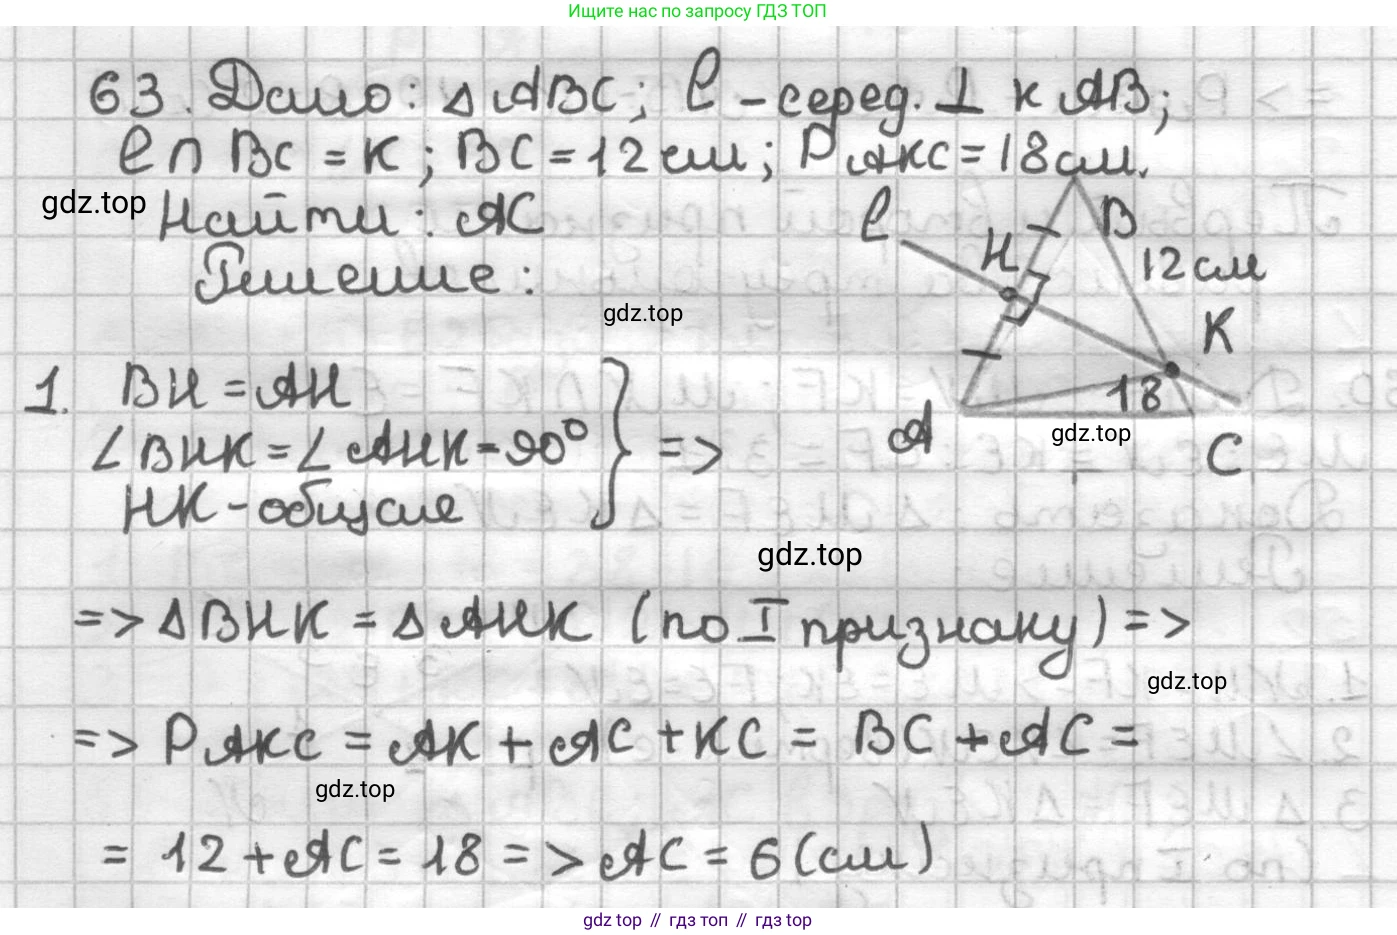 Ищите нас по запросу ГДЗ ТОП
63. Дано: △ ABC; l - серед. ⊥ к AB;
l ∩ BC = K; BC = 12 см; P AKC = 18 см.
gdz.top
Найти: AC
Решение:
l
H
B
12 см
K
18
A
C
gdz.top
gdz.top
1. BH = AH
∠ BHK = ∠ AHK = 90°
HK - общая
=>
gdz.top
=> △ BHK = △ AHK (по I признаку) =>
gdz.top
=> P AKC = AK + AC + KC = BC + AC =
gdz.top
= 12 + AC = 18 => AC = 6 (см)
gdz top // гдз топ // гдз top